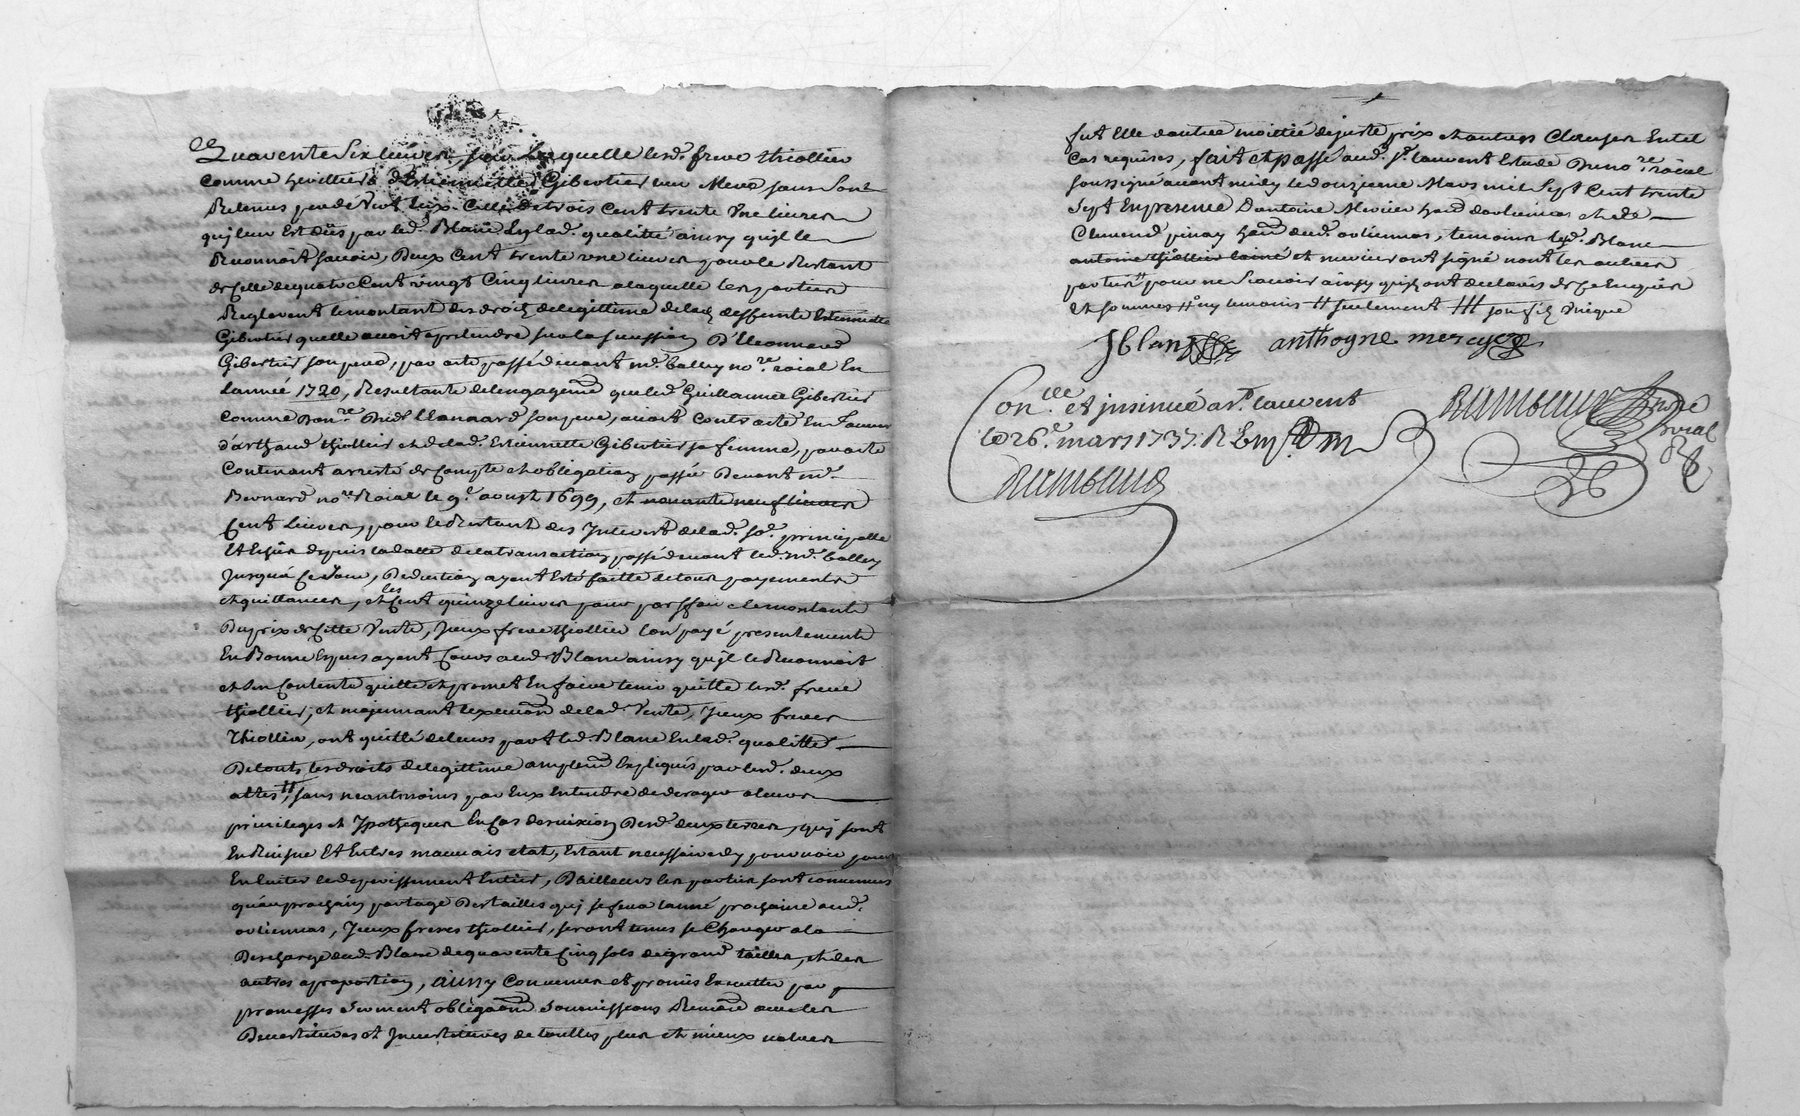 Quarente Six livres, pour lesquelle lesd. frere thiollier
comme heritiers d'Estiennette Gibertier leur Mere sans sont
Retenus par devant eux celle de trois cent trente une livres
qu'il leur est düs par led. Blanc en lad. qualitté ainsy qu'jl le
Reconnoit scavoir, Deux Cent trente une livres pour le Restant
de Celle de quatre Cent vingt Cinq livres a laquelle les parties
Reglerent le montant des droits de legittime de lad. deffunte Estiennette
Gibertier quelle avoit a prendre sur la succession D'Leonnard
Gibertier son pere, par acte passé devant me. balley nore. roial En
Lannée 1720, Resultante de lengagemt que led. Guillaume Gibertier
comme Donre. Dud. Leonnard son pere, avoit Contracté En faveur
d'arthaud thiollier et de lad. Estiennette Gibertier sa femme, par acte
Contenant arresté de Compte et obligation passé Devant me.
Bernard nore Roial le 9e. aoust 1699, et nonante neuf livres
Cent livres, pour le Restant des Interest de lad. so. principalle
Et Echûs depuis la datte de la transaction passé devant led. me. balley
Jusqu'a Ce Jour, Deduction ayent Esté faitte de tous payements
et quittances, et les Cent quinze livres pour parffaire le montant
Du prix de Cette Vente, Jceux frere thiollier l'on payé presentement
En Bonne Espeses ayent Cours aud. Blanc ainsy qu'jl le Reconnoit
et s'en Contente quitte et promet En faire tenir quitte lesd. frere
thiollier, et mojennant lexecuon de lad. Vente, Jceux freres
Thiollier, ont quitté de leurs part led. Blanc En lad. qualitté
De touts les droits de legittime amplemt Expliqués par lesd. deux
actes H, sans neantmoins par Eux Entendre de deroger a leurs
privileges et Jpotheques En Cas d'eviction Desd. deux terres, qui sont
En Ruisne Et En tres mauvais etat, Estant necessaire dy pourvoir pour
En Eviter le deperissement Entier, D'ailleurs les parties sont convenues
qu'au prochain partage Des tailles qui se fera lanné prochaine aud.
ovliennas, Jceux freres thiollier, seront tenus se Charger a la
Descharge dud. Blanc de quarente Cinq sols de grand tailles, et des
autres a proportion, ainsy Convenu et promis Executter par
promesses serment obligaons soumissions Renons avec les
Devestitures et Jnvestitures de touttes plus et mieux values
fut Elle doutre moittié de juste prix et autres Clauses En tel
Cas requises, fait et passé aud. St. laurent Estude Du nore. roial
soussigné avant midy le douzieme Mars mil Sept Cent trente
Sept En presence D'antoine Mercier hand d'ovliennas et de
Clement pinay hand dud. ovliennas, temoins led. Blanc
antoine thiollier lainé et mercier ont signé nont les autres
parties H pour ne scavoir ainsy qu'jls ont declarés de Ce Enquis
Et sommés H ny temoins H seulement HH son fils Vnique
J blanc anthogne mercyer
Conlle et jnsinué a St. laurent
le 26e. mars 1737. R